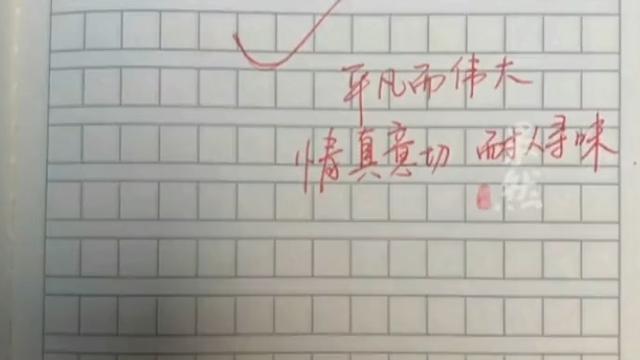 平凡而伟大
情真意切 耐人寻味